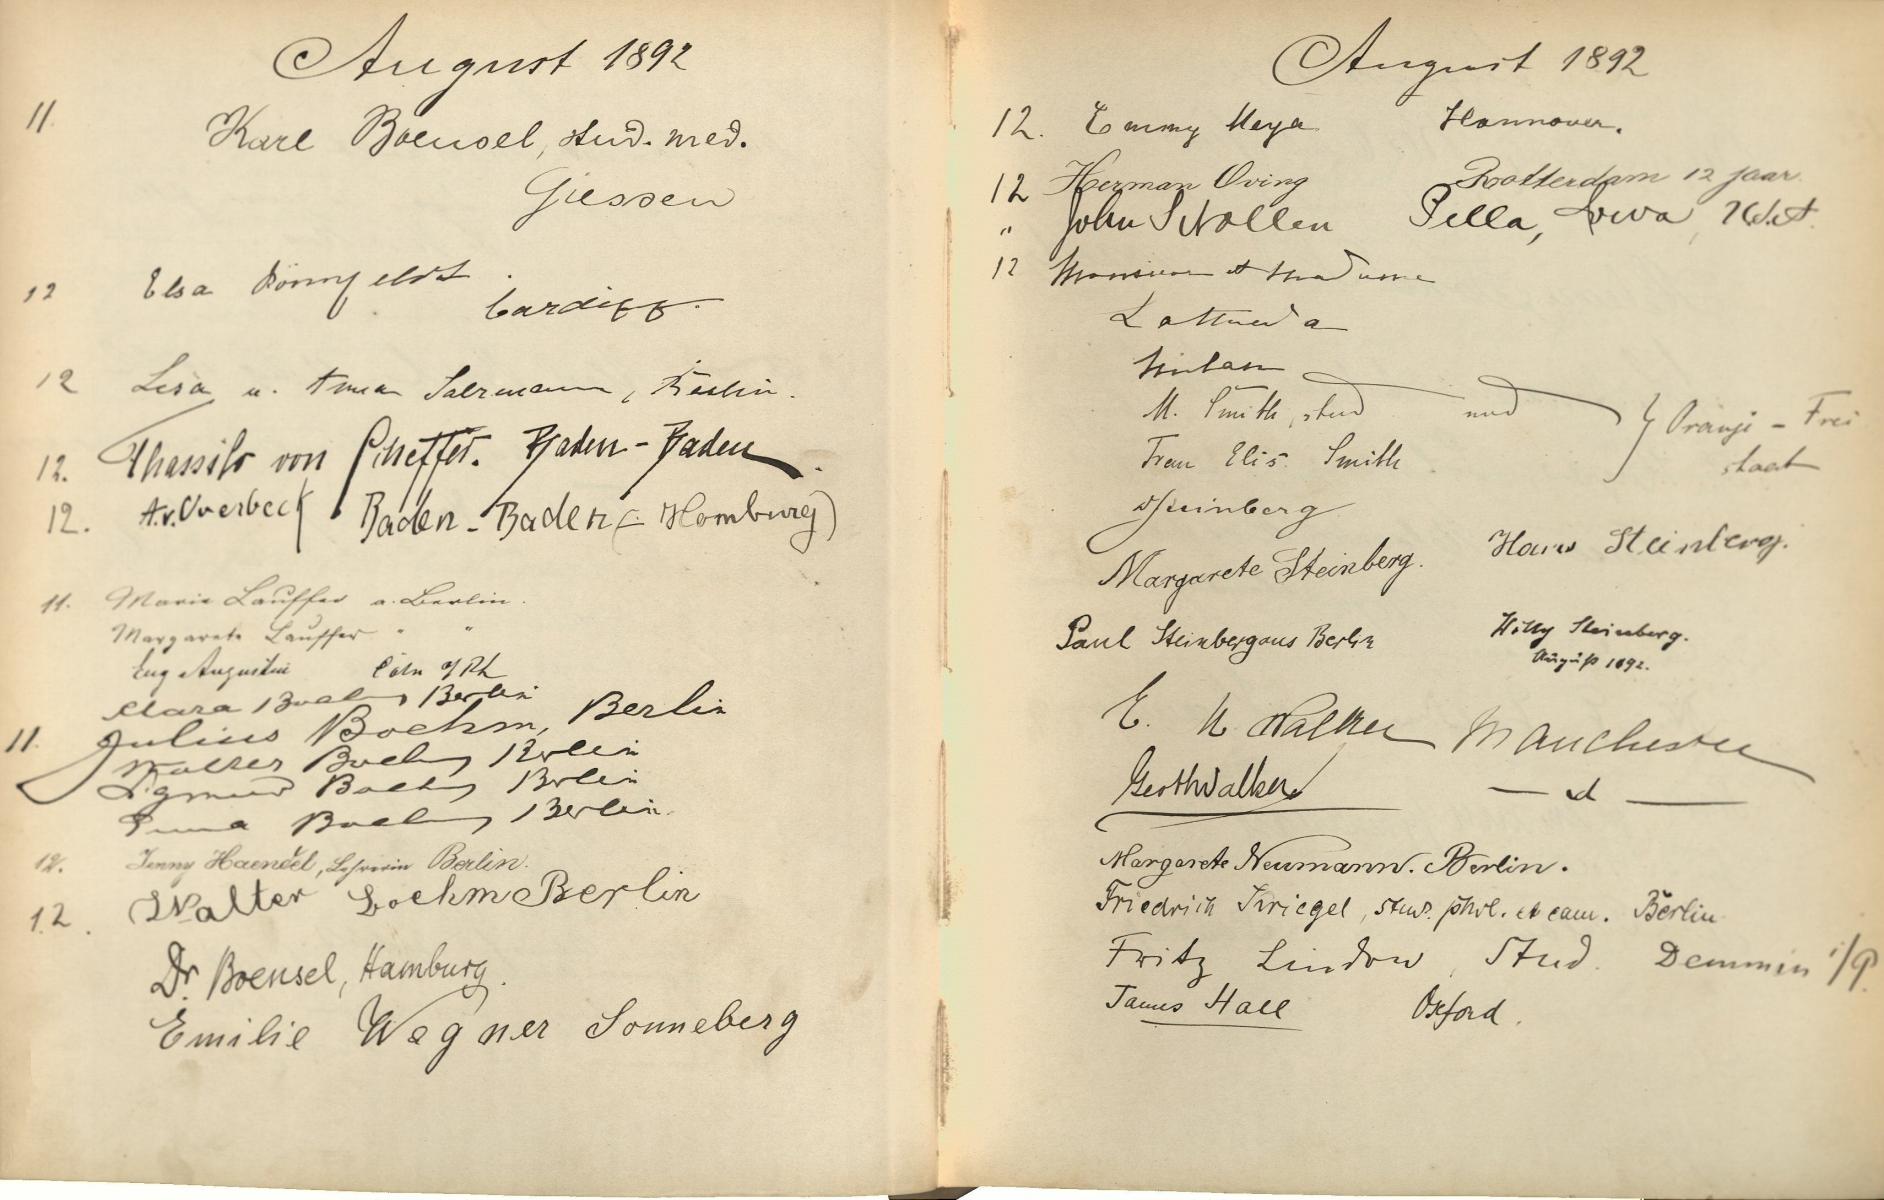 August 1892
11. Karl Boensel, stud. med.
Giessen
12 Elsa
Cardiff.
12 Lisa u. Anna Salzmann, Berlin.
12. Thassilo von Scheffer. Baden-Baden
12. A.v.Overbeck Baden-Baden (- Homburg)
11. Marie Lauffer a. Berlin.
Margarete Lauffer " "
Eug Augustin Cöln a/Rh
Clara Boehm Berlin
11. Julius Boehm, Berlin
Walter Boehm Berlin
Sigmund Boehm Berlin
Anna Boehm Berlin.
12. Jenny Haendel, Lehrerin Berlin.
12. Walter Boehm Berlin
Dr. Boensel, Hamburg.
Emilie Wegner Sonneberg
August 1892
12. Emmy Meyer Hannover.
12 Herman Oving Rotterdam 12 jaar.
" John S Nollen Pella, Iowa, U.S.A.
12 Monsieur et Madame
Lattuada
Milan
M. Smith, stud med } Oranje-Frei
Frau Elis. Smith staat
Steinberg
Margarete Steinberg. Hans Steinberg.
Paul Steinberg aus Berlin Willy Steinberg.
August 1892.
E. N. Walker Manchester
Gerth Walker — d —
Margarete Neumann. Berlin.
Friedrich Kriegel, stud. phil. et cam. Berlin
Fritz Lindow, Stud. Demmin i/P.
James Hall Oxford.